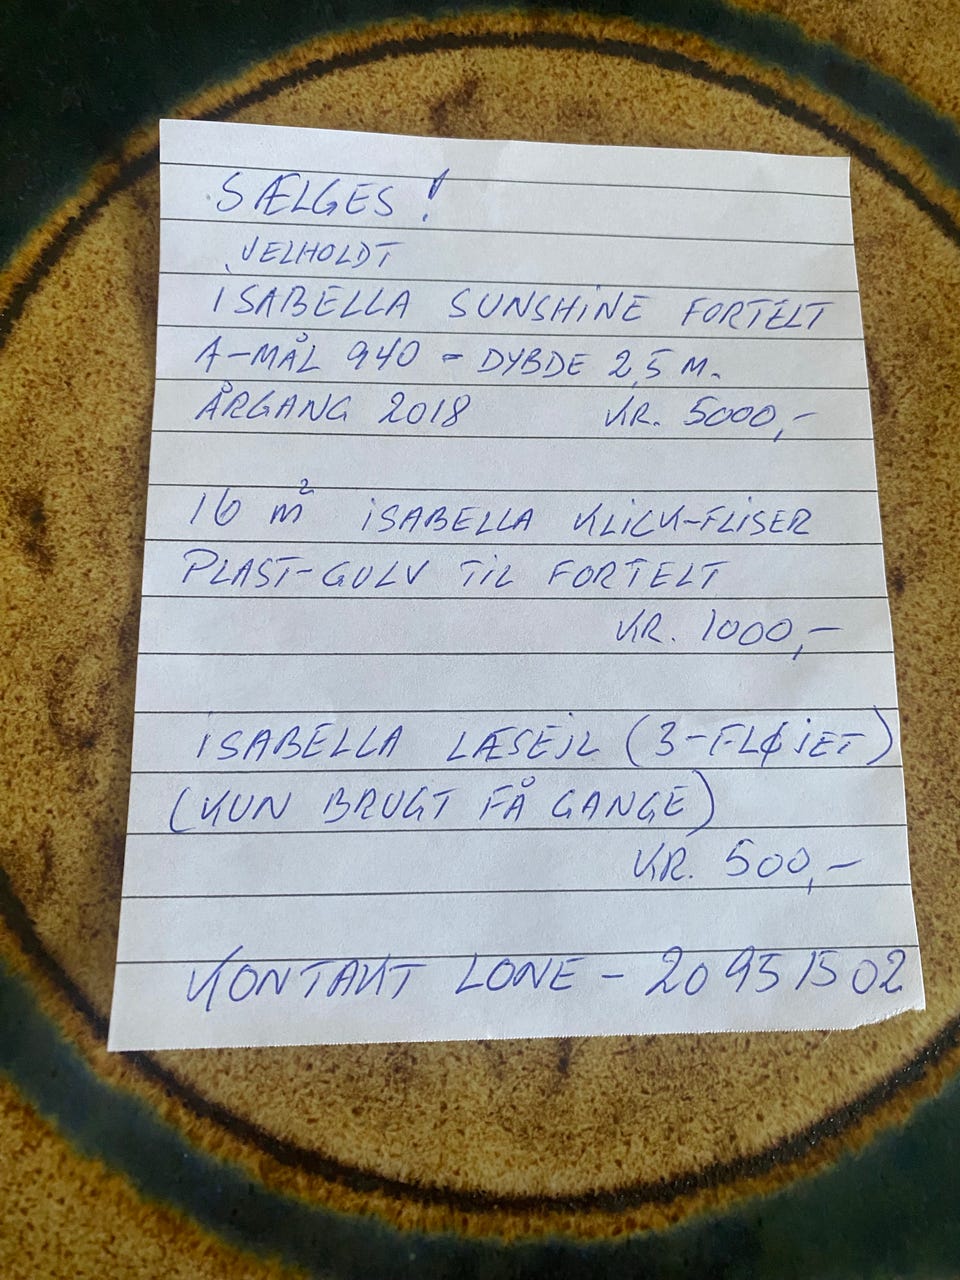 SÆLGES!
VELHOLDT
ISABELLA SUNSHINE FORTELT
A-MÅL 940 - DYBDE 2,5 M.
ÅRGANG 2018 KR. 5000,-
16 m² ISABELLA KLICK-FLISER
PLAST-GULV TIL FORTELT
KR. 1000,-
ISABELLA LÆSEJL (3-FLØJET)
(KUN BRUGT FÅ GANGE)
KR. 500,-
KONTAKT LONE - 20951502